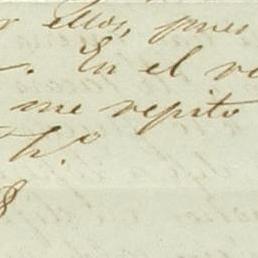 ellos, pues
. En el
me repito
h.º
8